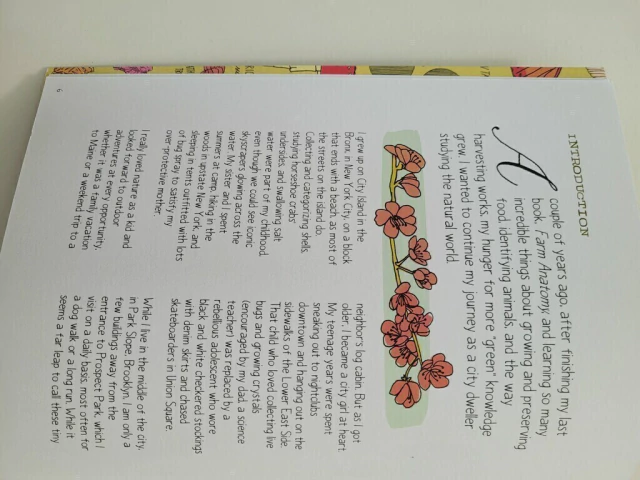 INTRODUCTION
A couple of years ago, after finishing my last
book, Farm Anatomy, and learning so many
incredible things about growing and preserving
food, identifying animals, and the way
harvesting works, my hunger for more "green" knowledge
grew. I wanted to continue my journey as a city dweller
studying the natural world.
I grew up on City Island in the
Bronx, in New York City, on a block
that ends with a beach, as most of
the streets on the island do.
Collecting and categorizing shells,
studying horseshoe crabs'
undersides, and swallowing salt
water were part of my childhood,
even though we could see iconic
skyscrapers glowing across the
water. My sister and I spent
summers at camp, hiking in the
woods in upstate New York, and
sleeping in tents outfitted with lots
of bug spray to satisfy my
over protective mother.
I really loved nature as a kid and
looked forward to outdoor
adventures at every opportunity,
whether it was a family vacation
to Maine or a weekend trip to a
neighbor's log cabin. But as I got
older, I became a city girl at heart.
My teenage years were spent
sneaking out to nightclubs
downtown and hanging out on the
sidewalks of the Lower East Side.
That child who loved collecting live
bugs and growing crystals
(encouraged by my dad, a science
teacher) was replaced by a
rebellious adolescent who wore
black and white checkered stockings
with denim skirts and chased
skateboarders in Union Square.
While I live in the middle of the city,
in Park Slope, Brooklyn, I am only a
few buildings away from the
entrance to Prospect Park, which I
visit on a daily basis, most often for
a dog walk or a long run. While it
seems a far leap to call these tiny
6